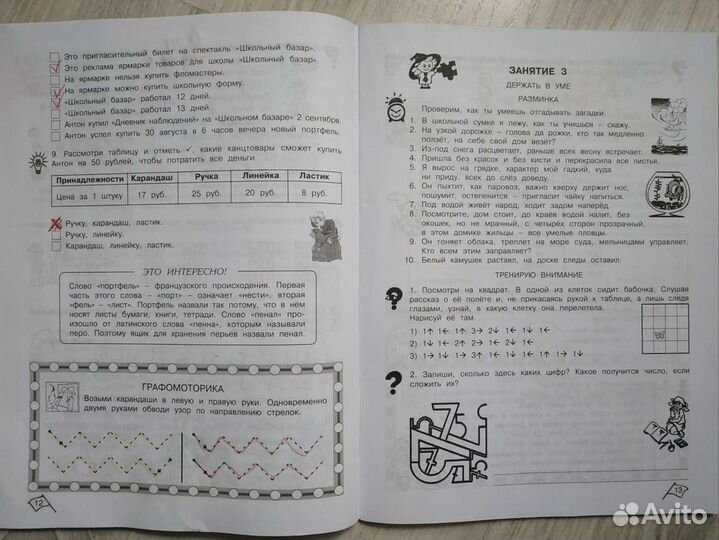 Это пригласительный билет на спектакль «Школьный базар».
Это реклама ярмарки товаров для школы «Школьный базар».
На ярмарке нельзя купить фломастеры.
На ярмарке можно купить школьную форму.
«Школьный базар» работал 12 дней.
«Школьный базар» работал 13 дней.
Антон купил «Дневник наблюдений» на «Школьном базаре» 2 сентября.
Антон успел купить 30 августа в 6 часов вечера новый портфель.
9. Рассмотри таблицу и отметь ✓, какие канцтовары сможет купить
Антон на 50 рублей, чтобы потратить все деньги.
Принадлежности Карандаш Ручка Линейка Ластик
Цена за 1 штуку 17 руб. 25 руб. 20 руб. 8 руб.
Ручку, карандаш, ластик.
Ручку, линейку.
Карандаш, линейку, ластик.
ЭТО ИНТЕРЕСНО!
Слово «портфель» – французского происхождения. Первая
часть этого слова – «порт» – означает «нести», вторая
«фель» – «лист». Портфель назвали так потому, что в нём
носят листы бумаги, книги, тетради. Слово «пенал» про-
изошло от латинского слова «пенна», которым называли
перо. Поэтому ящик для хранения перьев назвали пенал.
ГРАФОМОТОРИКА
Возьми карандаши в левую и правую руки. Одновременно
двумя руками обводи узор по направлению стрелок.
12
ЗАНЯТИЕ 3
ДЕРЖАТЬ В УМЕ
РАЗМИНКА
Проверим, как ты умеешь отгадывать загадки.
1. В школьной сумке я лежу, как ты учишься – скажу.
2. На узкой дорожке – голова да рожки, кто так медленно
ползёт, на себе свой дом везёт?
3. Из-под снега расцветает, раньше всех весну встречает.
4. Пришла без красок и без кисти и перекрасила все листья.
5. Я вырос на грядке, характер мой гадкий, куда
ни приду, всех до слёз доведу.
6. Он пыхтит, как паровоз, важно кверху держит нос,
пошумит, остепенится – пригласит чайку напиться.
7. Под водой живёт народ, ходит задом наперёд.
8. Посмотрите, дом стоит, до краёв водой налит, без
окошек, но не мрачный, с четырёх сторон прозрачный,
в этом домике жильцы – все умелые пловцы.
9. Он гоняет облака, треплет на море суда, мельницами управляет.
Кто всем этим заправляет?
10. Белый камушек растаял, на доске следы оставил.
ТРЕНИРУЮ ВНИМАНИЕ
1. Посмотри на квадрат. В одной из клеток сидит бабочка. Слушая
рассказ о её полёте и, не прикасаясь рукой к таблице, а лишь следя
глазами, узнай, в какую клетку она перелетела.
Нарисуй её там.
1) 1↑ 1← 1↑ 3→ 2↓ 1← 1↓ 1←
2) 1↓ 1← 2↑ 2→ 2↓ 1← 1↓ 1←
3) 1→ 1↓ 3← 1↑ 1→ 1↑ 1← 1↑ 1→ 1↓
2. Запиши, сколько здесь каких цифр? Какое получится число, если
сложить их?
13
Avito